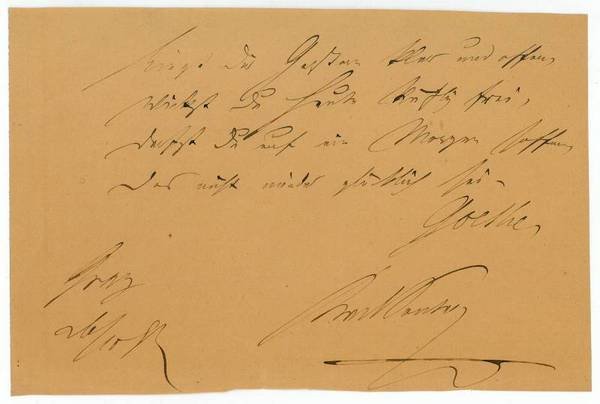 Liegt dir Gestern klar und offen,
Wirkst Du heute kräftig frei,
Darfst Du auf ein Morgen hoffen,
Das nicht minder glücklich sei.
Goethe.
Graz